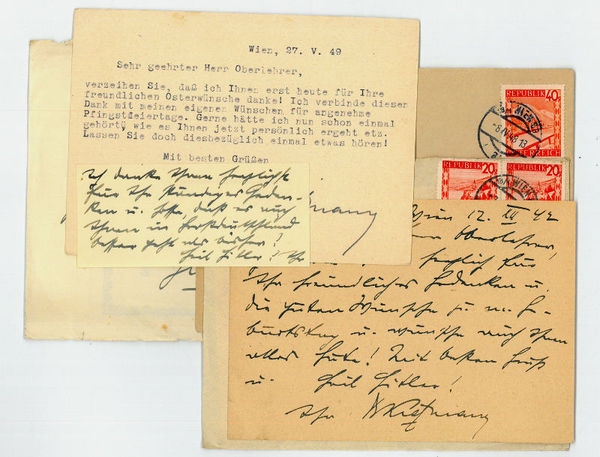 Wien, 27. V. 49
Sehr geehrter Herr Oberlehrer,
verzeihen Sie, daß ich Ihnen erst heute für Ihre
freundlichen Osterwünsche danke! Ich verbinde diesen
Dank mit meinen eigenen Wünschen für angenehme
Pfingstfeiertage. Gerne hätte ich nun schon einmal
gehört, wie es Ihnen jetzt persönlich ergeht etz.
Lassen Sie doch diesbezüglich einmal etwas hören!
Mit besten Grüßen
Ich danke Ihnen herzlichst
für Ihr Geden-
ken u. hoffe, daß es auch
Ihnen in Großdeutschland
besser geht als bisher!
Heil Hitler! Ihr
REPUBLIK 40
ÖSTERREICH
REPUBLIK 20
REPUBLIK 20
Wien 12. 42
Oberlehrer,
herzlich für
Ihr freundliches Gedenken u.
die guten Wünsche z. m. Ge-
burtstag u. wünsche auch Ihnen
alles Gute! Mit besten Gruß
u. Heil Hitler!
Ihr